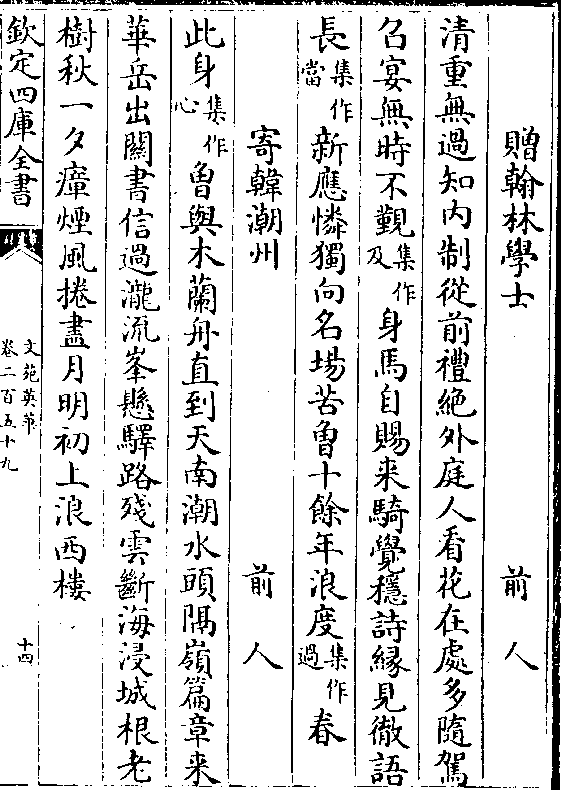 贈翰林學士　前人
清重無過知内制從前禮絶外庭人看花在處多隨駕
召宴無時不觀集作及身馬自賜来騎覺穩詩縁見徹語
長集作當新應憐獨向名場苦曾十餘年浪度集作過春
寄韓潮州　前人
此身集作心曾與木蘭舟直到天南潮水頭隔嶺篇章来
華岳出關書信過瀧流峯懸驛路殘雲斷海浸城根老
樹秋一夕瘴煙風捲盡月明初上浪西樓
欽定四庫全書
文苑英華
卷二百五十九
十四